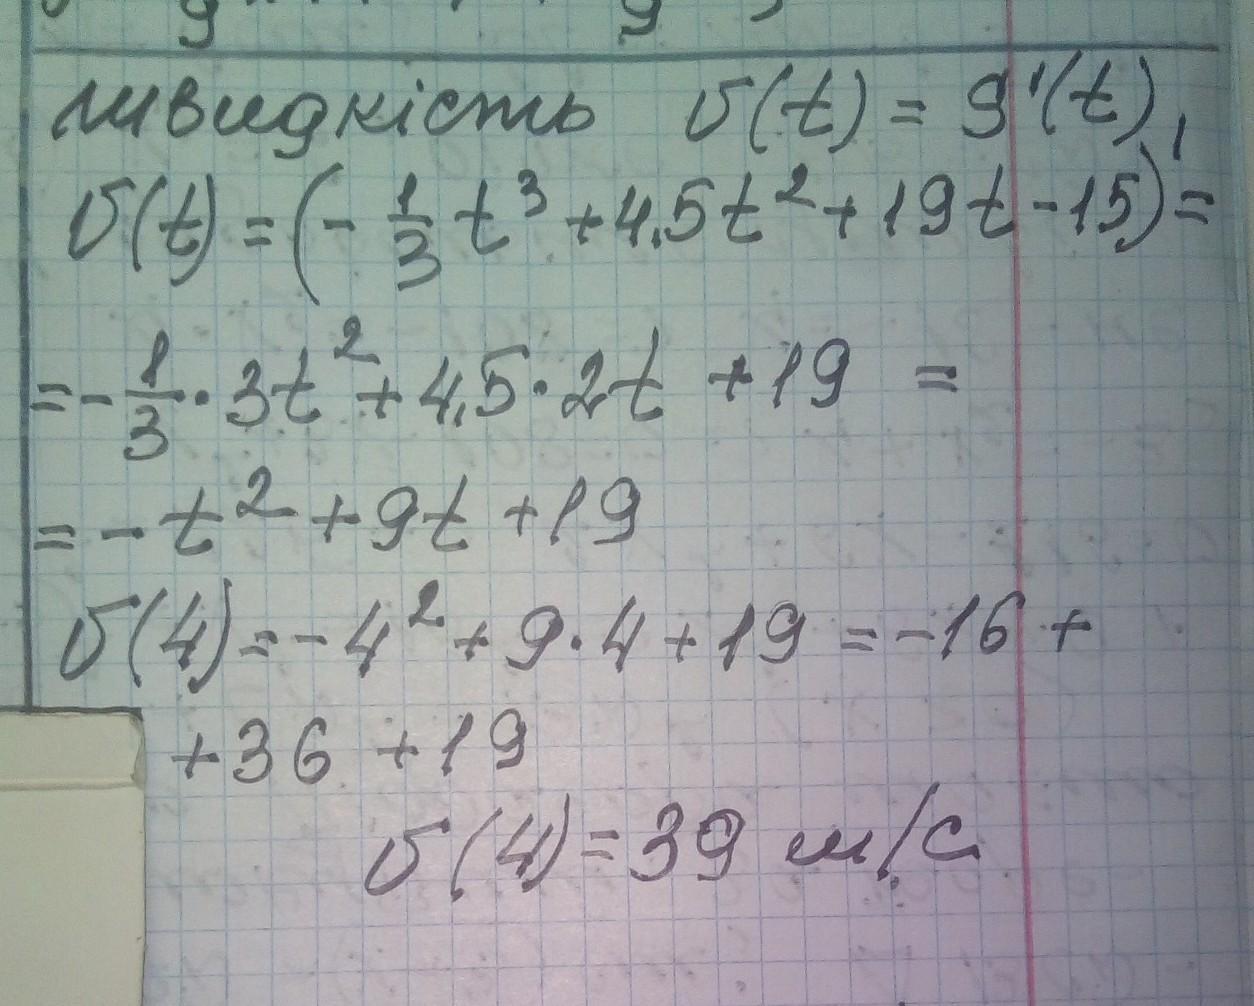 швидкість υ(t) = g'(t)
υ(t) = (-1/3 t³ + 4,5t² + 19t - 15)' =
= -1/3 · 3t² + 4,5 · 2t + 19 =
= -t² + 9t + 19
υ(4) = -4² + 9·4 + 19 = -16 +
+36 +19
υ(4) = 39 м/с